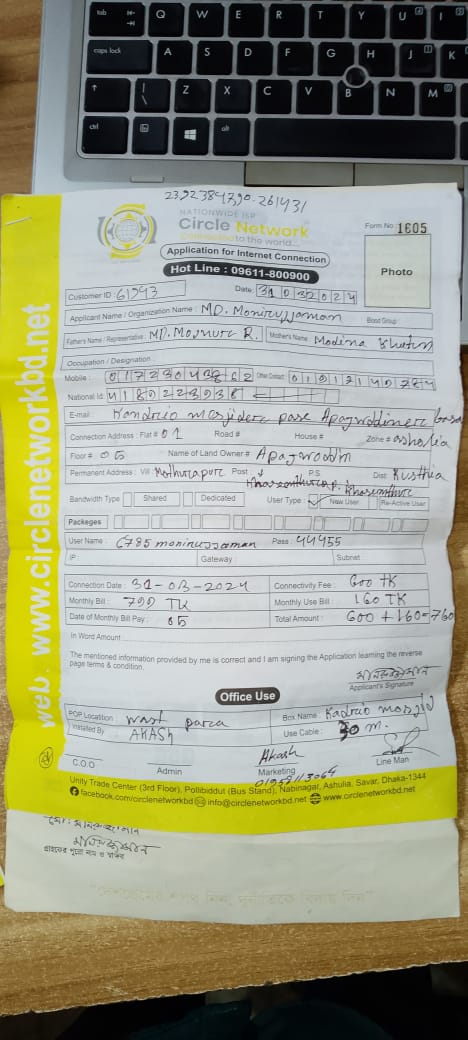 2392384390.261431
NATIONWIDE ISP
Circle Network
Connected to the world...
Form No 1605
Application for Internet Connection
Hot Line : 09611-800900
Photo
Customer ID : 61943 Date: 31032024
Applicant Name / Organization Name : MD. Monirujjaman Blood Group :
Father's Name / Representative : MD. Mojnure R. Mother's Name Modina Khatun
Occupation / Designation :
Mobile : 01723043862 Other Contact :
National Id:
E-mail : Kandrio masjider pase
Connection Address : Flat # 01 Road # House # Zone # ashulia
Floor # 05 Name of Land Owner #
Permanent Address : Vill : Mothurapure Post P.S Dist Kusthia
Bandwidth Type Shared Dedicated User Type : New User Re-Active User
Packages
User Name : C785 monirujjaman Pass : 44455
IP : Gateway Subnet
Connection Date : 31-03-2024 Connectivity Fee : 600 TK
Monthly Bill : 700 TK Monthly Use Bill : 160 TK
Date of Monthly Bill Pay : 05 Total Amount : 600 + 160-760
In Word Amount
The mentioned information provided by me is correct and I am signing the Application learning the reverse
page terms & condition.
Applicant's Signature
Office Use
POP Location : wast para Box Name : Kadrio mosjid
Installed By AKASH Use Cable : 30 m.
C.O.O Admin Akash Marketing Line Man
Unity Trade Center (3rd Floor), Pollibiddut (Bus Stand), Nabinagar, Ashulia, Savar, Dhaka-1344
facebook.com/circlenetworkbd info@circlenetworkbd.net www.circlenetworkbd.net
web: www.circlenetworkbd.net
মো: মনিরুজ্জামান
মনিরুজ্জামান
গ্রাহকের পুরো নাম ও স্বাক্ষর